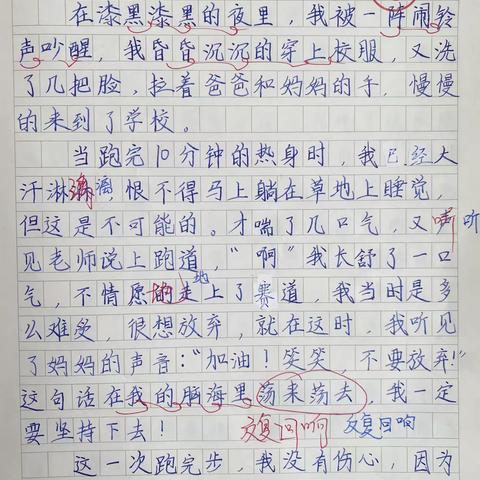 在漆黑漆黑的夜里，我被一阵闹铃
声吵醒，我昏昏沉沉的穿上校服，又洗
了几把脸，拉着爸爸和妈妈的手，慢慢
的来到了学校。
当跑完10分钟的热身时，我已经大
汗淋漓，恨不得马上躺在草地上睡觉，
但这是不可能的。才喘了几口气，又听
见老师说上跑道，“啊”我长舒了一口
气，不情愿地走上了赛道，我当时是多
么难受，很想放弃，就在这时，我听见
了妈妈的声音：“加油！笑笑，不要放弃！”
这句话在我的脑海里荡来荡去，我一定
要坚持下去！ 反复回响 反复回响
这一次跑完步，我没有伤心，因为